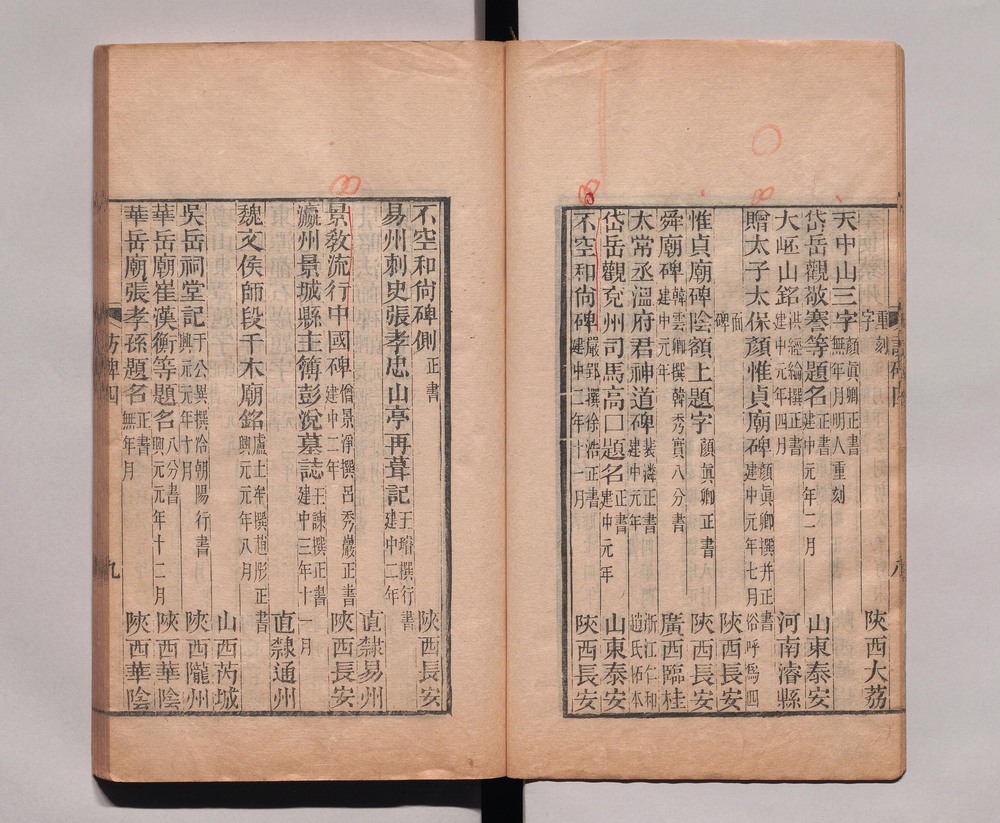 重刻 陝西大荔
字
天中山三字 顏眞卿正書 無年月明人重刻
岱岳觀敬騫等題名 正書 建中元年二月 山東泰安
大岯山銘 洪經綸撰正書 建中元年四月 河南濬縣
贈太子太保顏惟貞廟碑 顏眞卿撰并正書 建中元年七月 俗呼爲四
面
碑 陝西長安
惟貞廟碑陰額上題字 顏眞卿正書 陝西長安
舜廟碑 韓雲卿撰韓秀實八分書 建中元年 廣西臨桂
太常丞溫府君神道碑 裴潾正書 建中元年 浙江仁和趙氏拓本
岱岳觀兗州司馬高口題名 正書 建中元年 山東泰安
不空和尙碑 嚴郢撰徐浩正書 建中二年十一月 陝西長安
八
不空和尙碑側 正書 陝西長安
易州刺史張孝忠山亭再葺記 王璿撰行書 建中二年 直隸易州
景敎流行中國碑 僧景淨撰呂秀巖正書 建中二年 陝西長安
瀛州景城縣主簿彭涗墓誌 王諫撰正書 建中三年十一月 直隸通州
魏文侯師段干木廟銘 盧士牟撰趙彤正書 興元元年八月 山西芮城
吳岳祠堂記 于公異撰冷朝陽行書 興元元年十月 陝西隴州
華岳廟崔漢衡等題名 八分書 興元元年十二月 陝西華陰
華岳廟張孝孫題名 正書 無年月 陝西華陰
訪碑四
九